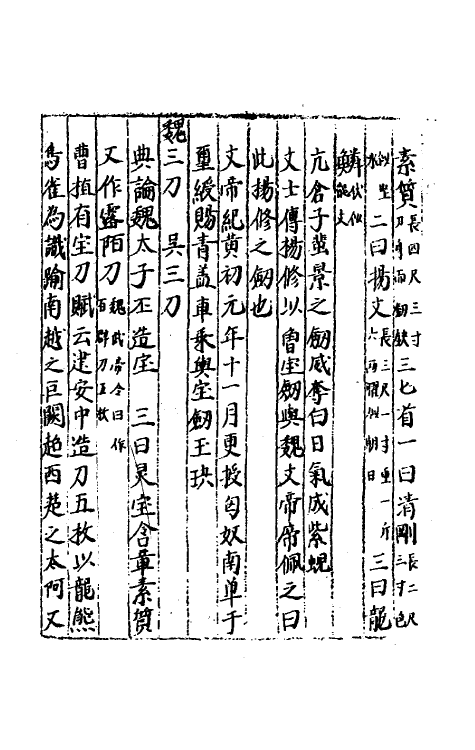 素質長四尺三寸刀身而劍鋏三匕首一曰清剛長二尺三寸色
似堅氷二曰揚文長三尺一寸重一斤六兩曜似朝日三曰龍
鱗狀似龍文
亢倉子蜚景之劍威奪白日氣成紫蜺
文士傳楊修以曹宝劍與魏文帝帝佩之曰
此楊修之劍也
文帝紀黄初元年十一月更授匈奴南单于
璽綬賜青盖車乘輿宝劍玉玦
魏三刀　吳三刀
典論魏太子丕造宝　三曰灵宝含章素質
又作露陌刀魏武帝令曰作百辟刀五枚
曹植有宝刀賦云建安中造刀五枚以龍熊
馬雀為識踰南越之巨闕超西楚之太阿又